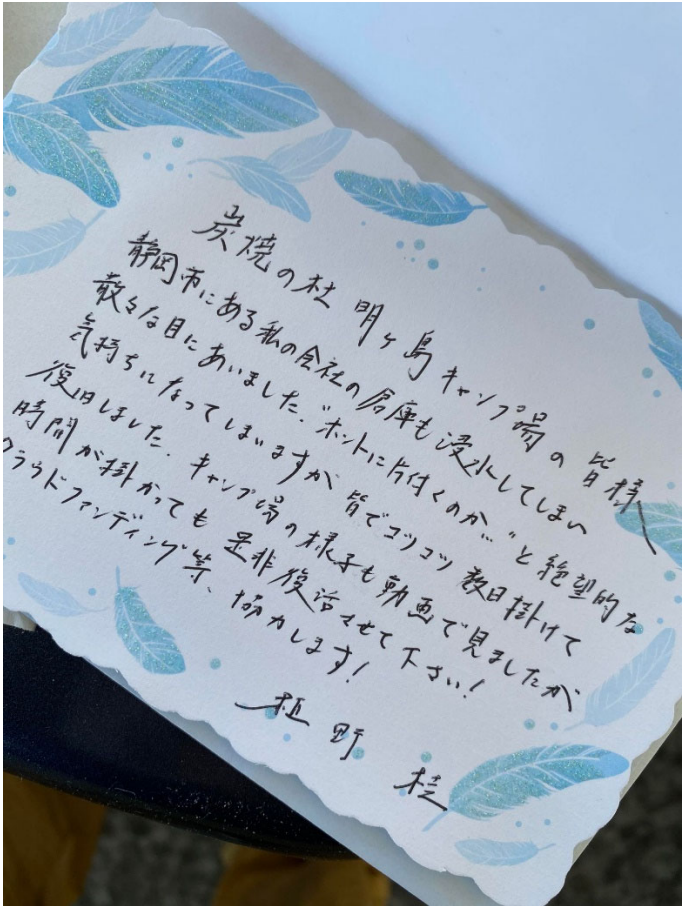 炭焼の杜 明ヶ島キャンプ場の皆様へ
静岡市にある私の会社の倉庫も浸水してしまい
散々な目にあいました.“ホントに片付くのか…”と絶望的な
気持ちになってしまいますが 皆でコツコツ 数日掛けて
復旧しました. キャンプ場の様子も動画で見ましたが
時間が掛かっても 是非復活させて下さい!
クラウドファンディング等、協力します!
植野 桂